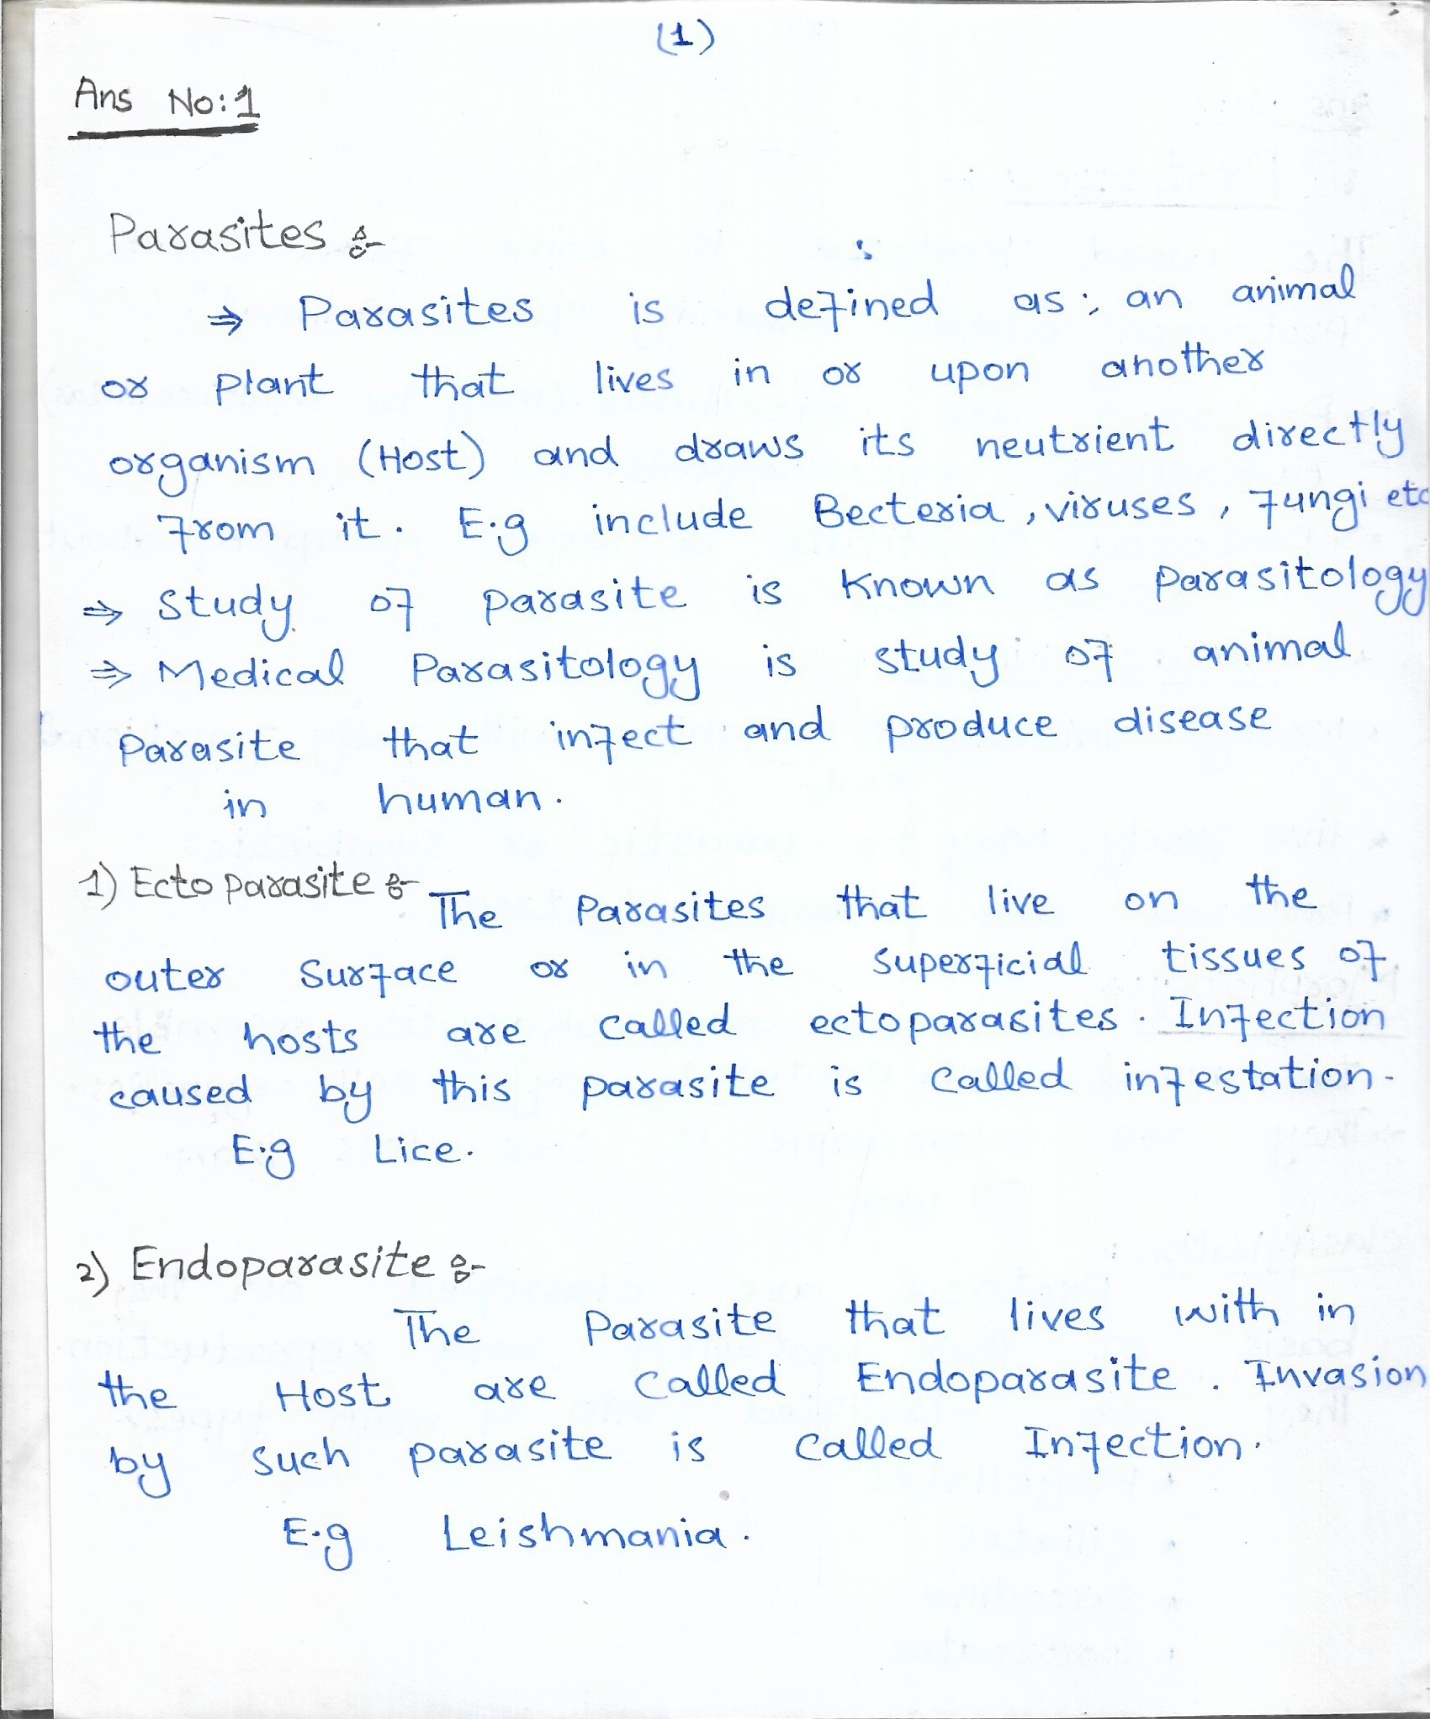 (1)
Ans No:1
Parasites :-
⇒ Parasites is defined as; an animal
or plant that lives in or upon another
organism (Host) and draws its neutrient directly
from it. E.g include Becteria, viruses, fungi etc
⇒ Study of parasite is known as parasitology
⇒ Medical Parasitology is study of animal
parasite that infect and produce disease
in human.
1) Ecto parasite :- The Parasites that live on the
outer surface or in the superficial tissues of
the hosts are called ectoparasites. Infection
caused by this parasite is called infestation.
E.g Lice.
2) Endoparasite :-
The Parasite that lives with in
the Host are called Endoparasite. Invasion
by such parasite is called Infection.
E.g Leishmania.